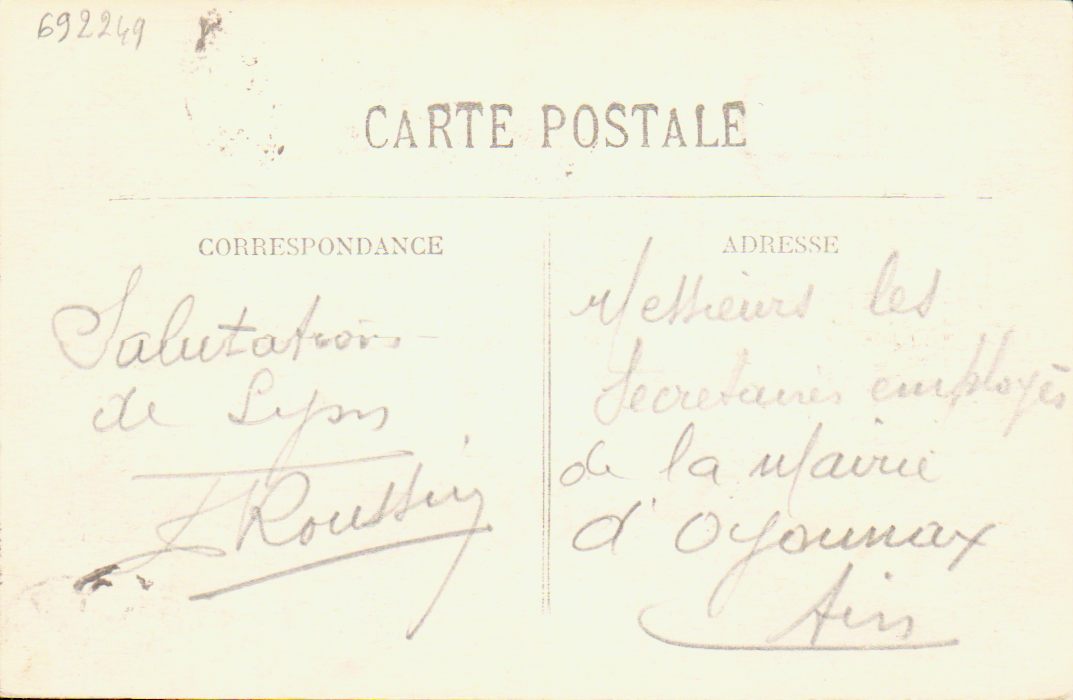 692249
CARTE POSTALE
CORRESPONDANCE
Salutations
de Lyon
Roussin
ADRESSE
Messieurs les
Secretaires employés
de la Mairie
d'Oyonnax
Ain